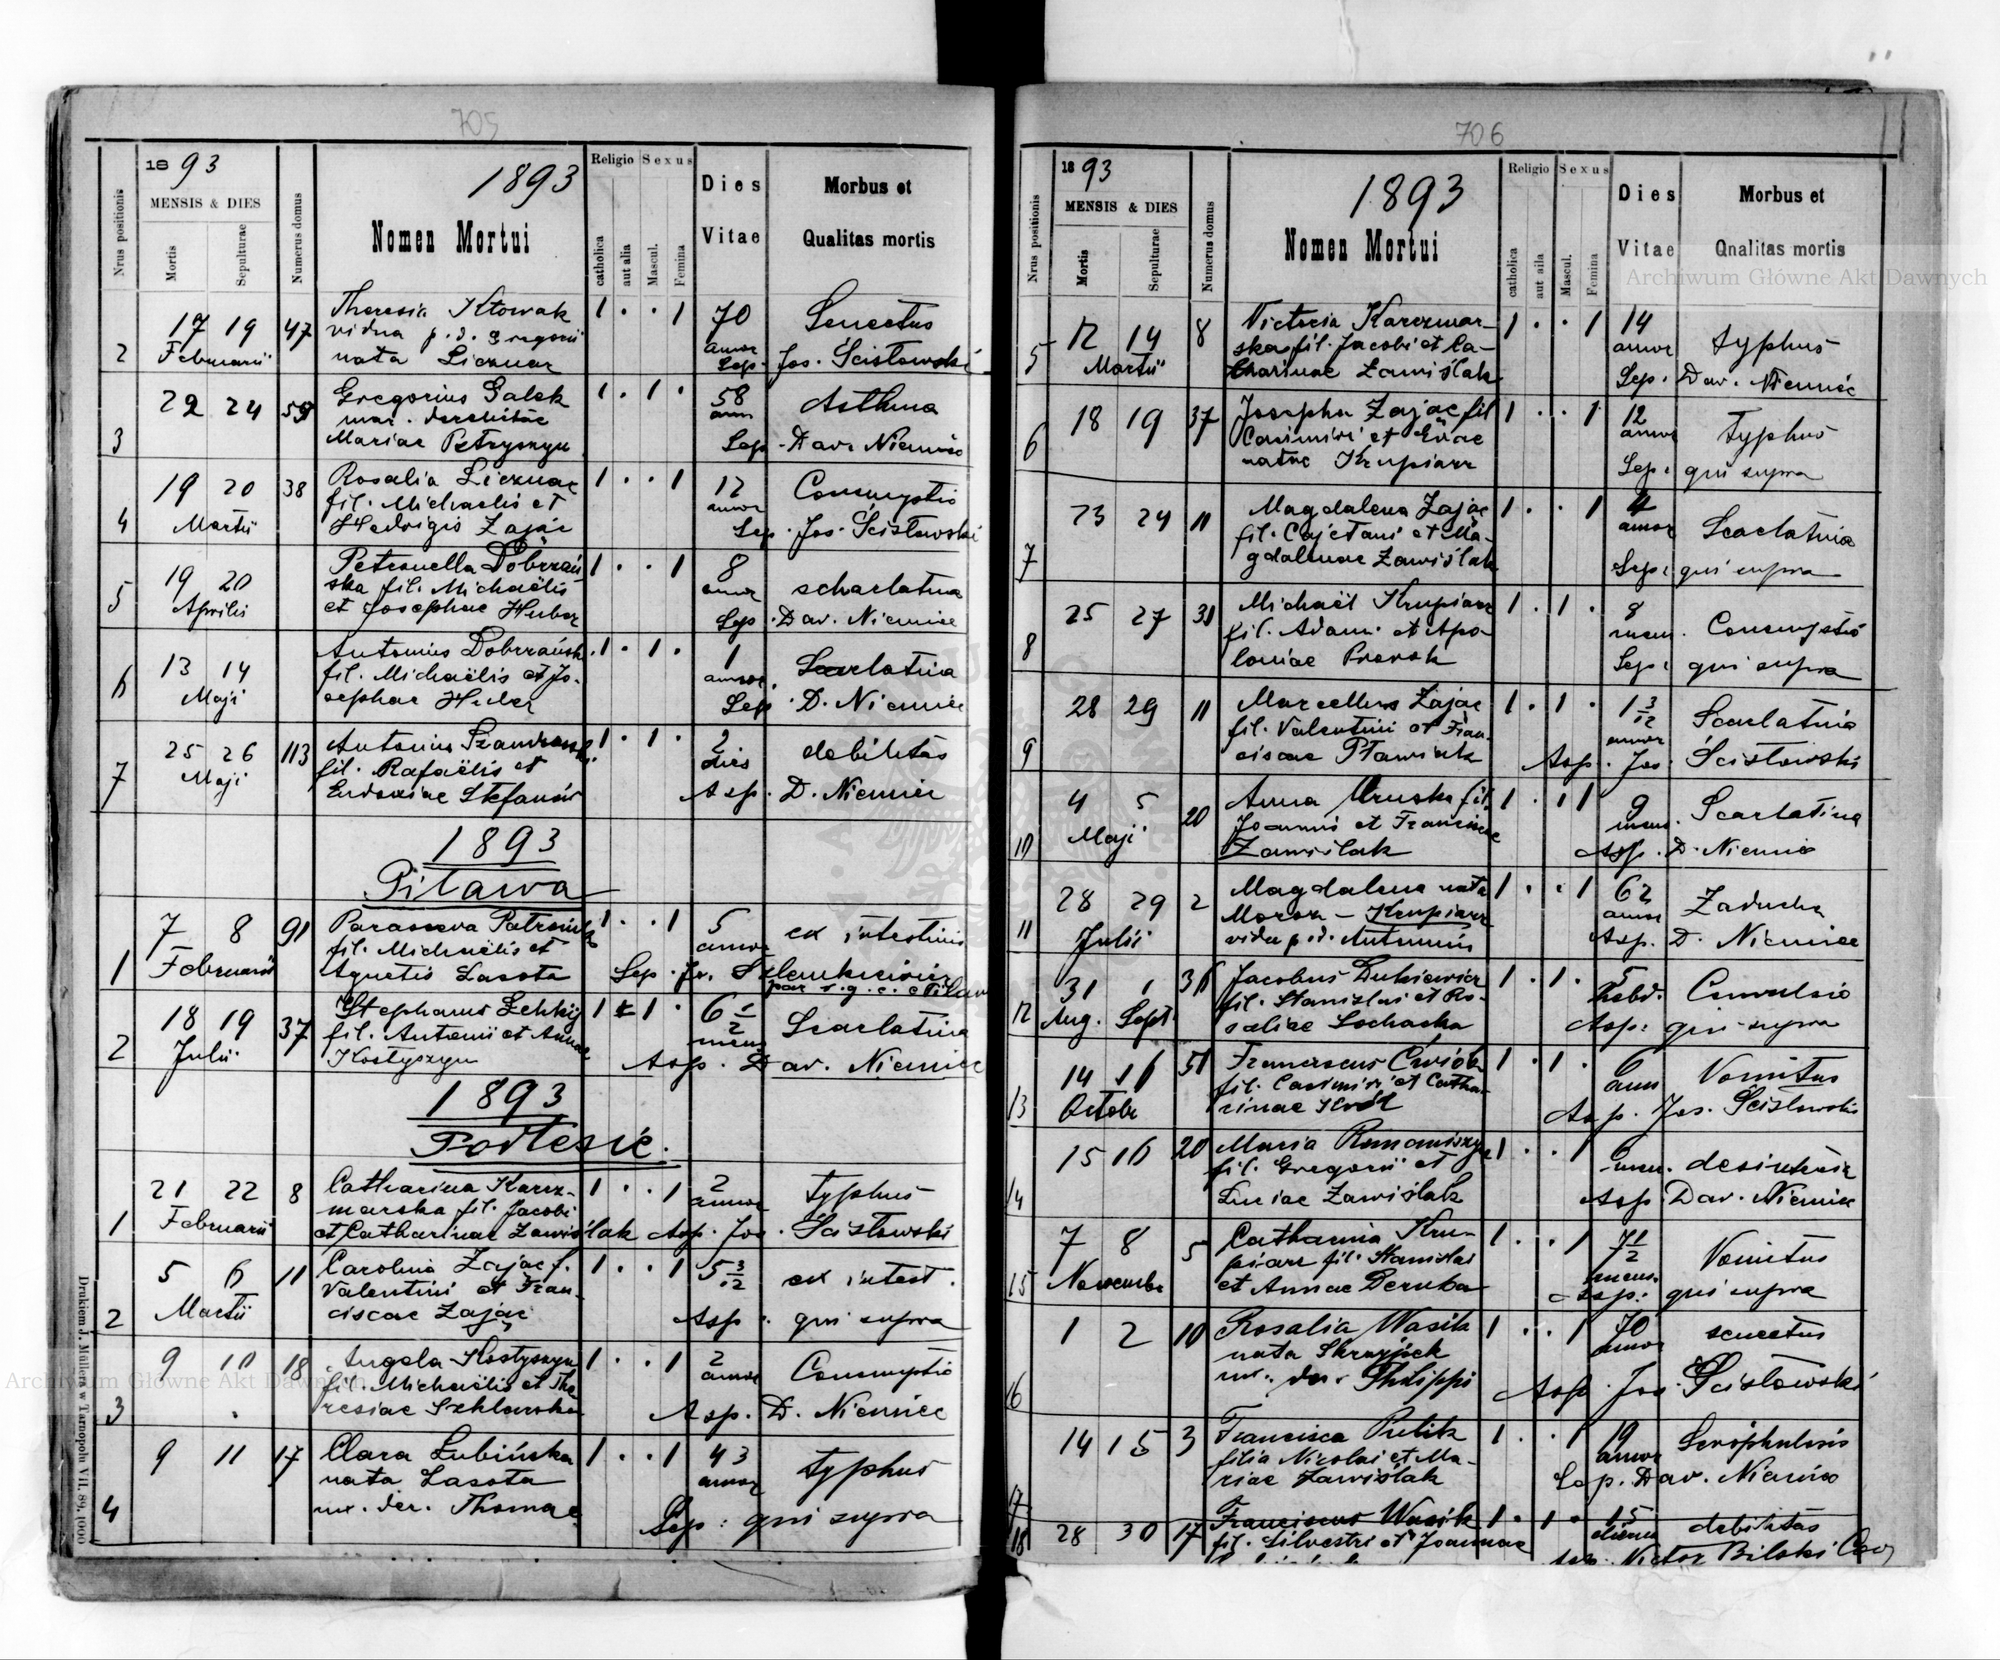 705
1893
MENSIS & DIES
Nrus positionis
Mortis
Sepulturae
Numerus domus
1893
Nomen Mortui
Religio
Sexus
catholica
aut alia
Mascul.
Femina
Dies
Vitae
Morbus et
Qualitas mortis
2 17 19 Februarii 47
Theresia
vidua p. d. Gregorii
nata Licznar
1 . . 1
70 annor
Senectus
Sep. Jos. Ścisłowski
3 22 24 59
Gregorius Galek
mar. derelictae
Mariae Petryszyn
1 . 1 .
58 ann
Asthma
Sep. Dav. Niemiec
4 19 20 Martii 38
Rosalia Licznar
fil. Michaelis et
Hedvigis Zając
1 . . 1
12 annor
Consumptio
Sep. Jos. Ścisłowski
5 19 20 Aprilis
Petronella Dobrzań-
ska fil. Michaëlis
et Josephae Huber
1 . . 1
8 annor
scharlatina
Sep. Dav. Niemiec
6 13 14 Maji
Antonius Dobrzański
fil. Michaëlis et Jo-
sephae Huber
1 . 1 .
1 annor.
Scarlatina
Sep. D. Niemiec
7 25 26 Maji 113
Antonius
fil. Rafaëlis et
Eudoxiae Stefanów
1 . 1 .
2 dies
debilitas
Asp. D. Niemiec
1893
Piława
1 7 8 Februarii 91
Parasceva
fil. Michaëlis et
Agnetis Lasota
1 . . 1
5 annor
ex intestinis
Sep. Jos. Szlenkiewicz
2 18 19 Julii 37
Stephanus
fil. Antonii et Annae
Kostyszyn
1 . 1 .
6 1/2 mens
Scarlatina
Asp. Dav. Niemiec
1893
Podlesie.
1 21 22 Februarii 8
Catharina Karcz-
marska fil. Jacobi
et Catharinae Zawiślak
1 . . 1
2 annor
typhus
Asp. Jos. Ścisłowski
2 5 6 Martii 11
Carolina Zając f.
Valentini et Fran-
ciscae Zając
1 . . 1
5 3/12
ex intest.
Asp. qui supra
3 9 10 18
Angela Kostyszyn
fil. Michaëlis et The
resiae Szklarska
1 . . 1
2 annor
Consumptio
Asp. D. Niemiec
4 9 11 17
Clara Lubińska
nata Lasota
ux. der. Thomae
1 . . 1
43 annor
typhus
Sep: qui supra
Drukiem J. Mullera w Tarnopolu VII. 89, 1000
706
1893
MENSIS & DIES
Nrus positionis
Mortis
Sepulturae
Numerus domus
1893
Nomen Mortui
Religio
Sexus
catholica
aut aila
Mascul.
Femina
Dies
Vitae
Morbus et
Qnalitas mortis
5 12 14 Martii 8
Victoria Karczmar-
ska fil. Jacobi et Ca-
tharinae Zawiślak
1 . . 1
14 annor
typhus
Sep. Dav. Niemiec
6 18 19 37
Josepha Zając fil
Casimiri et Evae
natae Krupiarz
1 . . 1
12 annor
Typhus
Sep: qui supra
7 23 24 11
Magdalena Zając
fil. Cajetani et Ma-
gdalenae Zawiślak
1 . . 1
4 annor
Scarlatina
Sep: qui supra
8 25 27 31
Michaël Krupiarz
fil. Adami et Apo-
loniae Prorok
1 . 1 .
8 mens.
Consumptio
Sep: qui supra
9 28 29 11
Marcellus Zając
fil. Valentini et Fran-
ciscae
1 . 1 .
1 3/12 annor
Scarlatina
Asp. Jos. Ścisłowski
10 4 5 Maji 20
Anna fil.
Joannis et Franciscae
Zawiślak
1 . . 1
9 mens.
Scarlatina
Asp. D. Niemiec
11 28 29 Julii 2
Magdalena nata
Moroz - Krupiarz
vidua p. d. Antonii
1 . . 1
62 annor
Zaducha
Asp. D. Niemiec
12 31 1 Aug. Sept. 36
Jacobus
fil. Stanislai et Ro-
saliae Sochacka
1 . 1 .
5 hebd.
Convulsio
Asp: qui supra
13 14 16 Octobr 51
Franciscus Ćwiok
fil. Casimiri et Catha-
rinae Król
1 . 1 .
6 ann
Vomitus
Asp. Jos. Ścisłowski
14 15 16 20
Maria Romaniszyn
fil. Gregorii et
Luciae Zawiślak
1 . . 1
6 mens.
Asp. Dav. Niemiec
15 7 8 Novembr 5
Catharina Kru-
piarz fil. Stanislai
et Annae Deruba
1 . . 1
7 1/2 mens.
Vomitus
Asp: qui supra
16 1 2 10
Rosalia Wasik
nata
ux. der. Philippi
1 . . 1
70 annor
senectus
Asp. Jos. Ścisłowski
17 14 15 3
Francisca Pulik
filia Nicolai et Ma-
riae Zawiślak
1 . . 1
19 annor
Scrophulosis
Sep. Dav. Niemiec
18 28 30 17
Franciscus Wasik
fil. Silvestri et Joannae
1 . 1 .
15 dierum
debilitas
Asp. Victor Bilski
Archiwum Główne Akt Dawnych
Archiwum Główne Akt Dawnych